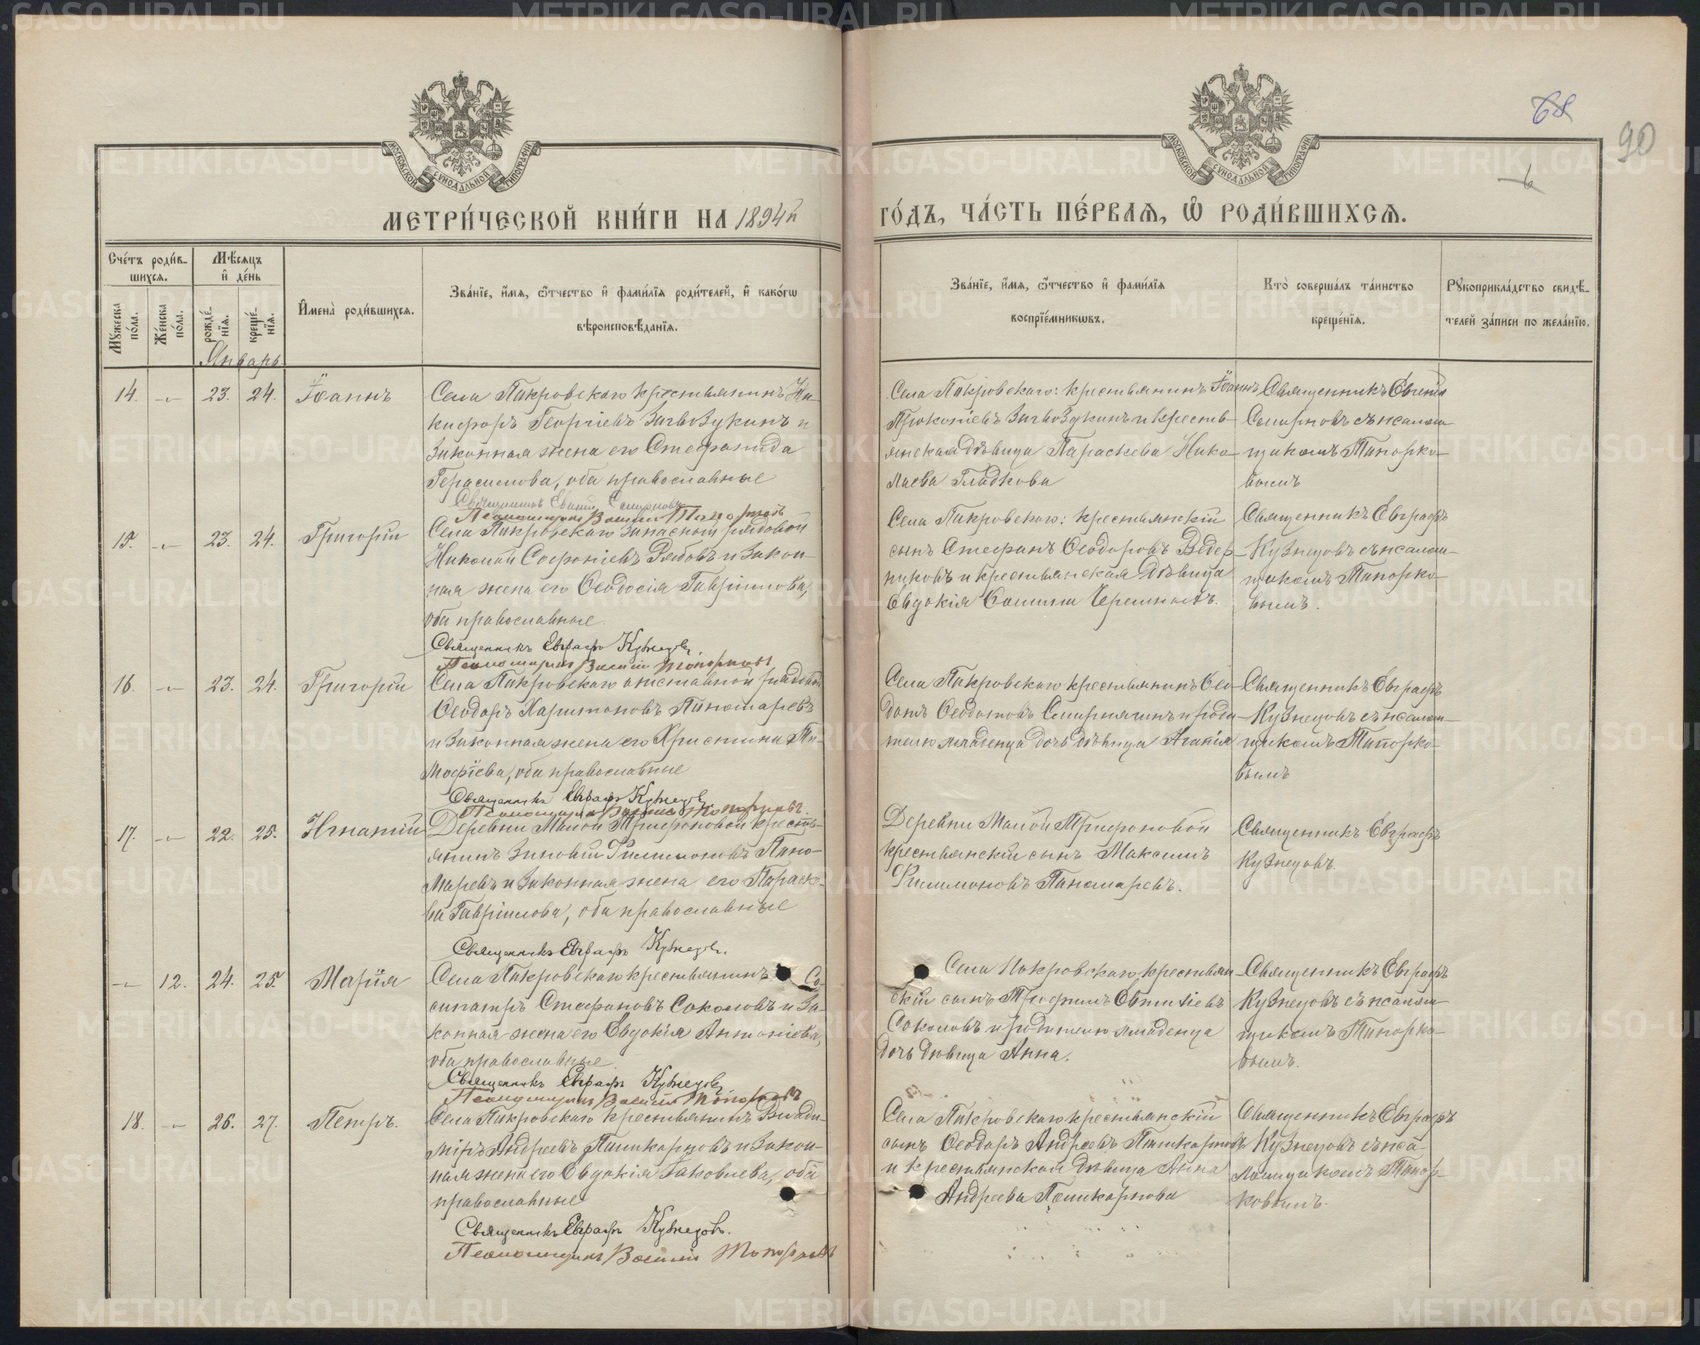 METRIKI.GASO-URAL.RU
68
90
6
МОСКОВСКОЙ СѴНОДАЛЬНОЙ ТИПОГРАФІИ
МОСКОВСКОЙ СѴНОДАЛЬНОЙ ТИПОГРАФІИ
МЕТРИ́ЧЕСКОЙ КНИ́ГИ НА 1894й
ГО́ДЪ, ЧА́СТЬ ПЕ́РВАѦ, Ѿ РОДИ́ВШИХСѦ.
Сче́тъ роди́в-
шихсѧ.
Мѣсѧцъ
и҆ де́нь
Мꙋжеска по́ла.
Же́нска по́ла.
рожде́-
нїѧ.
креще́-
нїѧ.
И҆мена̀ роди́вшихсѧ.
Зва́нїе, и҆́мѧ, ѻ҆́тчество и҆ фами́лїѧ роди́телей, и҆ како́гѡ
вѣроисповѣ́данїѧ.
Зва́нїе, и҆́мѧ, ѻ҆́тчество и҆ фами́лїѧ
воспрїе́мниковъ.
Кто̀ соверша́лъ та́инство
креще́нїѧ.
Рꙋкоприкла́дство свидѣ́-
телей за́писи по жела́нїю.
Январь
14. -„- 23. 24. Іоаннъ
Села Покровскаго крестьянинъ Ни-
кифоръ Георгіевъ Загвоздкинъ и
законная жена его Стефанида
Герасимова, оба православные
Священникъ Евгеній Смирновъ
Псаломщикъ Василій Топорковъ
Села Покровскаго: крестьянинъ Іоаннъ
Прокопіевъ Загвоздкинъ и кресть-
янская дѣвица Параскева Нико-
лаева Гладкова
Священникъ Евгеній
Смирновъ съ псалом-
щикомъ Топорко-
вымъ
15. -„- 23. 24. Григорій
Села Покровскаго запасный рядовой
Николай Софоніевъ Рябовъ и закон-
ная жена его Ѳеодосія Гавріилова,
оба православные.
Священникъ Евграфъ Кузнецовъ.
Псаломщикъ Василій Топорковъ
Села Покровскаго: крестьянскій
сынъ Стефанъ Ѳеодоровъ Ведер-
никовъ и крестьянская дѣвица
Священникъ Евграфъ
Кузнецовъ съ псалом-
щикомъ Топорко-
вымъ.
16. -„- 23. 24. Григорій
Села Покровскаго отставной рядовой
Ѳеодоръ Харитоновъ Пономаревъ
и законная жена его Христина Ти-
моѳіева, оба православные
Священникъ Евграфъ Кузнецовъ
Псаломщикъ Василій Топорковъ
Села Покровскаго крестьянинъ Ѳео-
дотъ Ѳеодотовъ Смирнягинъ и роди-
телю младенца дочь дѣвица Агапія
Священникъ Евграфъ
Кузнецовъ съ псалом-
щикомъ Топорко-
вымъ
17. -„- 22. 25. Игнатій
Деревни Малой Трифоновой кресть-
янинъ Зиновій Филимоновъ Поно-
маревъ и законная жена его Параске-
ва Гавріилова, оба православные
Священникъ Евграфъ Кузнецовъ.
Деревни Малой Трифоновой
крестьянскій сынъ Максимъ
Филимоновъ Пономаревъ.
Священникъ Евграфъ
Кузнецовъ.
-„- 12. 24. 25. Марія
Села Покровскаго крестьянинъ Со-
сипатръ Стефановъ Соколовъ и за-
конная жена его Евдокія Антоніева,
оба православные.
Священникъ Евграфъ Кузнецовъ
Псаломщикъ Василій Топорковъ
Села Покровскаго крестьян-
скій сынъ Трофимъ Евтихіевъ
Соколовъ и родителю младенца
дочь дѣвица Анна.
Священникъ Евграфъ
Кузнецовъ съ псалом-
щикомъ Топорко-
вымъ.
18. -„- 26. 27. Петръ.
Села Покровскаго крестьянинъ Влади-
міръ Андреевъ Пошкарповъ и закон-
ная жена его Евдокія Іаковлева, оба
православные
Священникъ Евграфъ Кузнецовъ.
Псаломщикъ Василій Топорковъ
Села Покровскаго крестьянскій
сынъ Ѳеодоръ Андреевъ
и крестьянская дѣвица Анна
Андреева
Священникъ Евграфъ
Кузнецовъ съ пса-
ломщикомъ Топор-
ковымъ.